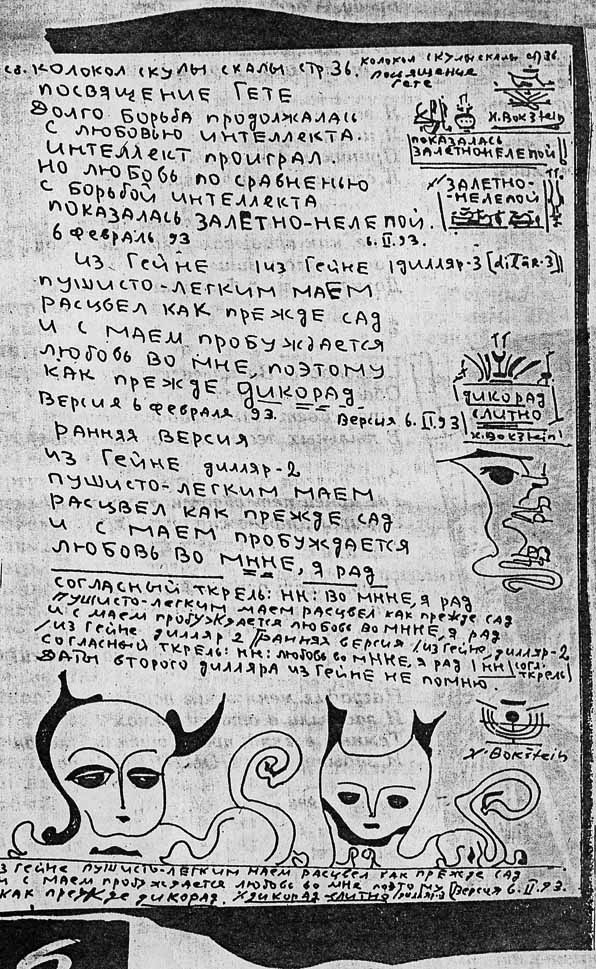 св. КОЛОКОЛ СКУЛЫ СКАЛЫ СТР. 36.
КОЛОКОЛ СКУЛЫ СКАЛЫ СТР 36.
ПОСВЯЩЕНИЕ
ГЕТЕ
ПОСВЯЩЕНИЕ ГЕТЕ
ДОЛГО БОРЬБА ПРОДОЛЖАЛАСЬ
С ЛЮБОВЬЮ ИНТЕЛЛЕКТА.
ИНТЕЛЛЕКТ ПРОИГРАЛ.
НО ЛЮБОВЬ ПО СРАВНЕНЬЮ
С БОРЬБОЙ ИНТЕЛЛЕКТА
ПОКАЗАЛАСЬ ЗАЛЕТНО-НЕЛЕПОЙ.
6 ФЕВРАЛЬ 93
6. II. 93.
И. Bokštein
ПОКАЗАЛАСЬ
ЗАЛЕТНОНЕЛЕПОЙ
ЗАЛЕТНО-
-НЕЛЕПОЙ
ИЗ ГЕЙНЕ /ИЗ ГЕЙНЕ /ДИЛЛЯР-3 [dillär-3]
ПУШИСТО-ЛЕГКИМ МАЕМ
РАСЦВЕЛ КАК ПРЕЖДЕ САД
И С МАЕМ ПРОБУЖДАЕТСЯ
ЛЮБОВЬ ВО МНЕ, ПОЭТОМУ
КАК ПРЕЖДЕ ДИКОРАД
ВЕРСИЯ 6 ФЕВРАЛЯ 93.
ВЕРСИЯ 6. II 93
ДИКОРАД
СЛИТНО
И. Bokštein
РАННЯЯ ВЕРСИЯ
ИЗ ГЕЙНЕ ДИЛЛЯР-2
ПУШИСТО-ЛЕГКИМ МАЕМ
РАСЦВЕЛ КАК ПРЕЖДЕ САД
И С МАЕМ ПРОБУЖДАЕТСЯ
ЛЮБОВЬ ВО МННЕ, Я РАД
СОГЛАСНЫЙ ТКРЕЛЬ: НН: ВО МННЕ, Я РАД
ПУШИСТО-ЛЕГКИМ МАЕМ РАСЦВЕЛ КАК ПРЕЖДЕ САД
И С МАЕМ ПРОБУЖДАЕТСЯ ЛЮБОВЬ ВО МННЕ, Я РАД
/ИЗ ГЕЙНЕ ДИЛЛЯР 2 /РАННЯЯ ВЕРСИЯ /ИЗ ГЕЙНЕ, ДИЛЛЯР-2
СОГЛАСНЫЙ ТКРЕЛЬ: НН: ЛЮБОВЬ ВО МННЕ, Я РАД /НН/ СОГЛ. ТКРЕЛЬ
ДАТЫ ВТОРОГО ДИЛЛЯРА ИЗ ГЕЙНЕ НЕ ПОМНЮ.
И. Bokštein
ИЗ ГЕЙНЕ ПУШИСТО-ЛЕГКИМ МАЕМ РАСЦВЕЛ КАК ПРЕЖДЕ САД
И С МАЕМ ПРОБУЖДАЕТСЯ ЛЮБОВЬ ВО МНЕ ПОЭТОМУ /ВЕРСИЯ 6. II. 93.
КАК ПРЕЖДЕ ДИКОРАД. ДИКОРАД СЛИТНО